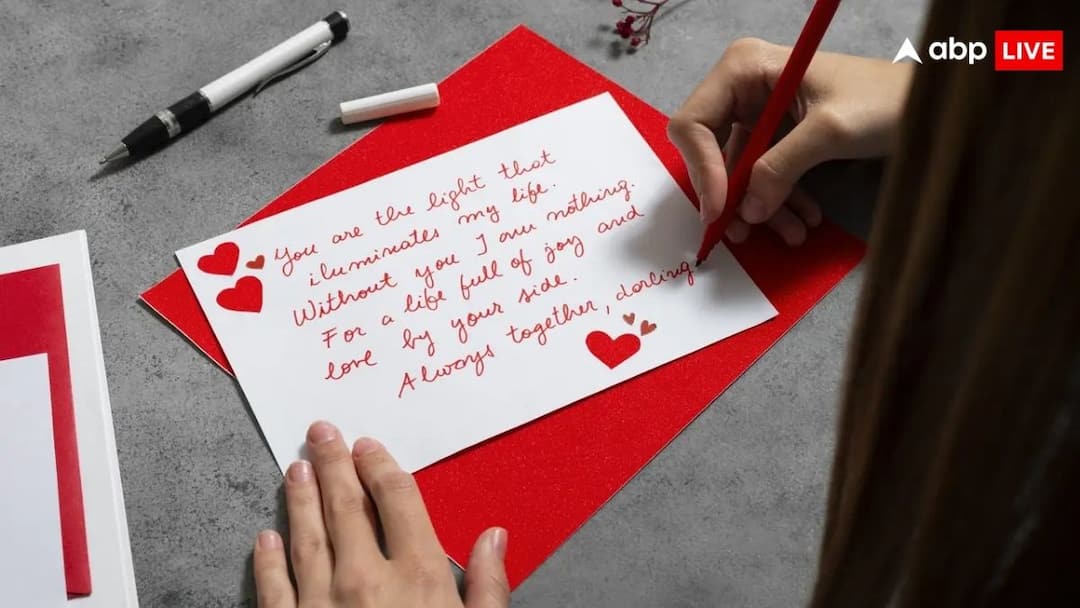 abp LIVE
You are the light that
iluminates my life.
Without you I am nothing.
For a life full of joy and
love by your side.
Always together, darling